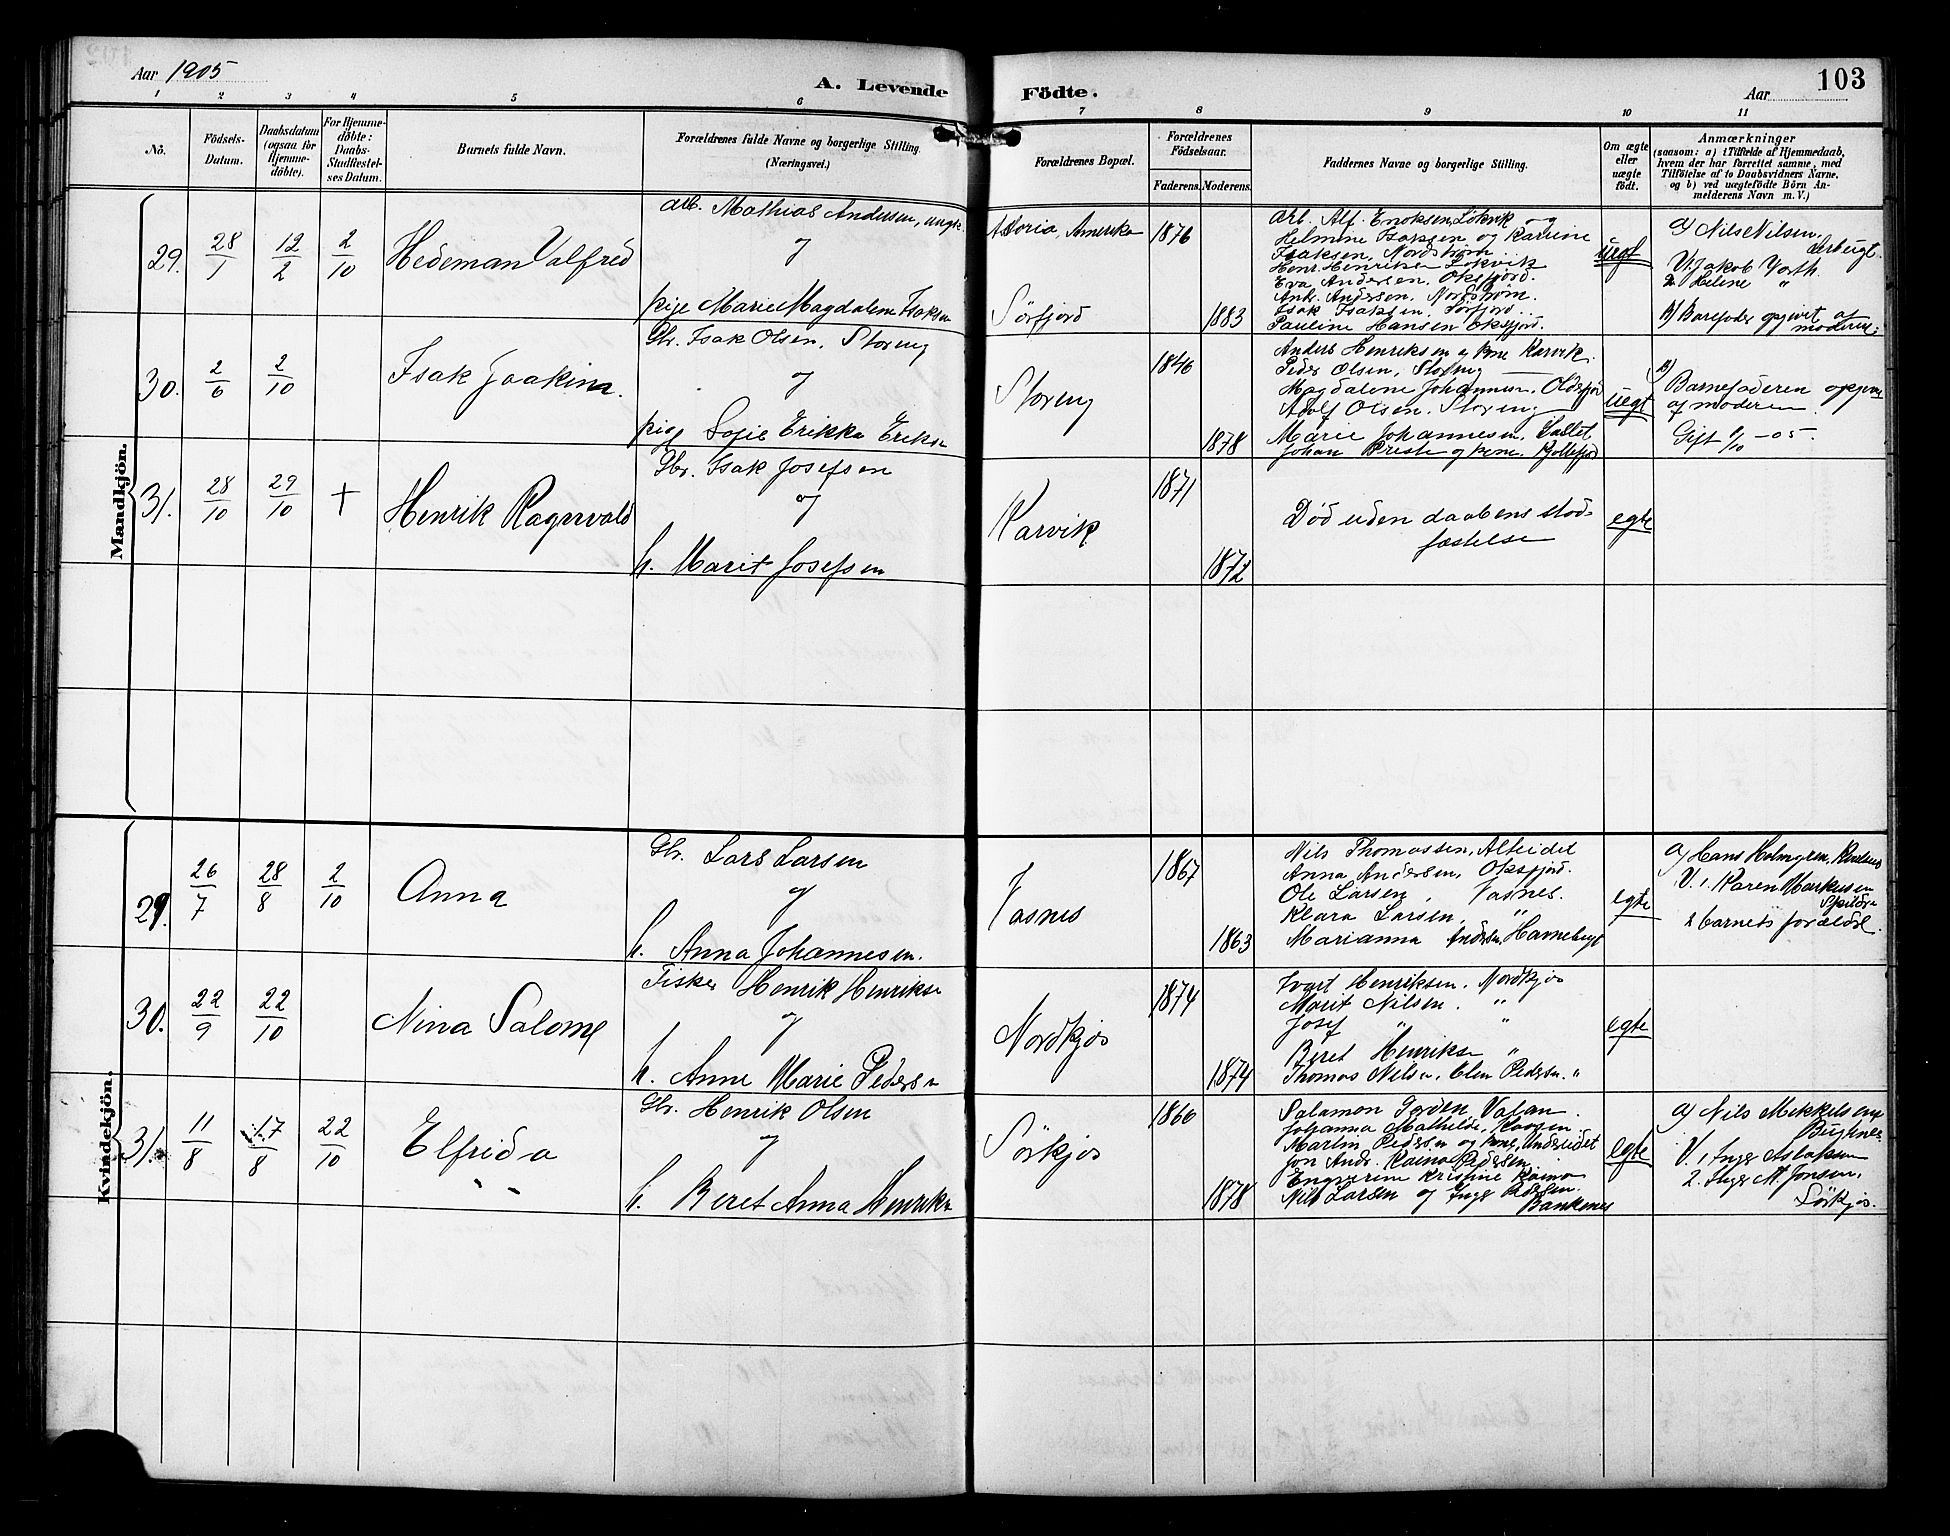 Aar 1905
A. Levende Födte.
Aar
103
1 2 3 4 5 6 7 8 9 10 11
No.
Födsels-
Datum.
Daabsdatum
(ogsaa for
Hjemme-
döbte).
For Hjemme-
döbte:
Daabs-
Stadfæstel-
ses Datum.
Barnets fulde Navn.
Forældrenes fulde Navne og borgerlige Stilling.
(Næringsvei.)
Forældrenes Bopæl.
Forældrenes
Födselsaar.
Faderens. Moderens.
Faddernes Navne og borgerlige Stilling.
Om ægte
eller
uægte
født.
Anmærkninger
(saasom: a) i Tilfælde af Hjemmedaab,
hvem der har forrettet samme, med
Tilföielse af to Daabsvidners Navne,
og b) ved uægtefödte Börn An-
melderens Navn m. V.)
Mandkjön.
29.
28/1
12/2
2/10
Hedeman Valfred
Arb. Mathias Andersen, ungk.
og
pige Marie Magdalena Isaksen
Astoria, Amerika
Sörfjord
1876
1883
Arb. Alf. Enoksen, Lökvik og
Helmine Isaksen og Karine
Isaksen, Nordström
Henr. Henriksen Lökvik
Eva Andersen, Oksfjord.
Andr. Andersen, Nordström.
Isak Isaksen, Sörfjord.
Pauline Hansen Oksfjord.
uegt
a) Nils Nilsen.
V. 1. Jakob
2 Helene "
b) Barefader opgivet af
moderen.
30.
2/6
2/10
Isak Joakim.
Gbr. Isak Olsen, Storeng
og
pige Sofie Erikka Eriksen
Storeng
1846
1878
Anders Henriksen og kone Karvik.
Peder Olsen, Storeng
Magdalene Johannesen, Oldefjord
Adolf Olsen, Storeng
Marie Johannesen,
Johan og kone.
uegt
b)
Barnefaderen opgiven
af moderen.
Gift 8/10 -05.
31.
28/10
29/10
+
Henrik Ragnvald
Gbr. Isak Josefsen
og
h. Marit Josefsen
Karvik
1871
1872
Död uden daabens stad-
fæstelse
egte
Kvindekjön.
29.
26/7
28/8
2/10
Anna
Gbr. Lars Larsen
og
h. Anna Johannesen.
Vasnes
1867
1863
Nils Thomassen, Alteidet
Anna Andersen, Oksfjord.
Ole Larsen, Vasnes.
Klara Larsen, "
Marianna Andersen, Havnebugt
egte
a) Hans Holmgren,
V. 1. Karen Markusen
Spildra
2 barnets forældre.
30.
22/9
22/10
Nina Salome
Fisker Henrik Henriksen
og
h. Anne Marie Pedersen
Nordkjos
1874
1874
Ivart Henriksen, Nordkjos
Marit Nilsen. "
Josef " "
Beret Henriksen "
Thomas Nilsen, Elen Pedersen. "
egte
31.
11/8
17/8
22/10
Elfrida
Gbr. Henrik Olsen
og
h. Beret Anna Henriksen
Sörkjos
1860
1878
Salamon Valan.
Johanna Mathilde,
Martin Pedersen og kone, Undereidet
Jon Andr. Kaino Pedersen,
Kristine Kaino
Nils Larsen og Inga Pedersen.
Bankenes
egte
a) Nils Mikkelsen,
Bugtnes.
V. 1, Inger Aslaksen
2. Inger M. Jonsen,
Sörkjos.